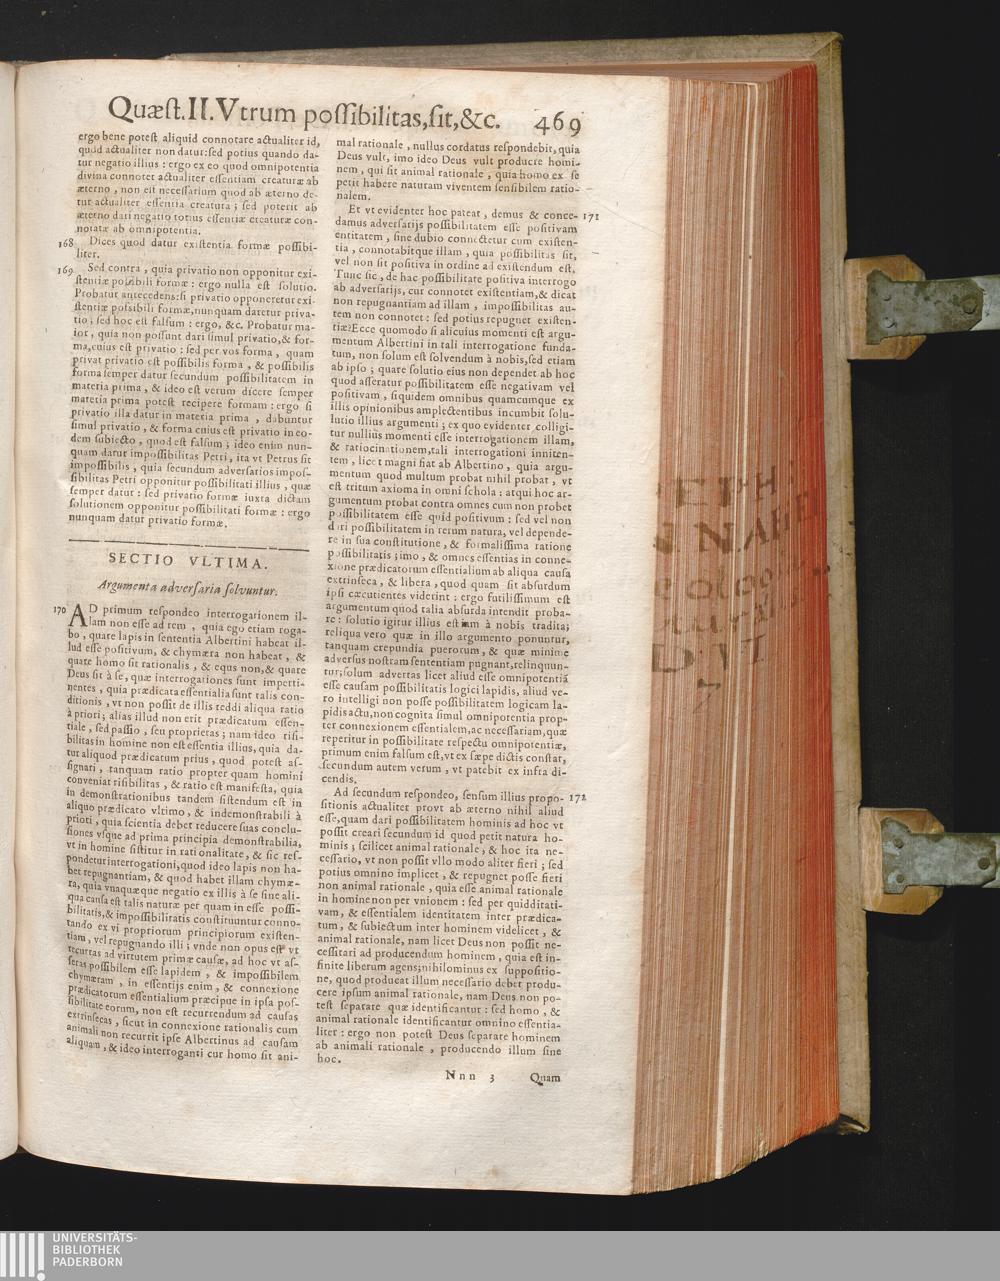 Quæst.II.Vtrum possibilitas,sit,&c. 469
ergo bene potest aliquid connotare actualiter id,
quod actualiter non datur:sed potius quando da-
tur negatio illius : ergo ex eo quod omnipotentia
divina connotet actualiter essentiam creaturæ ab
æterno , non est necessarium quod ab æterno de-
tur actualiter essentia creatura ; sed poterit ab
æterno dari negatio totius essentiæ creaturæ con-
notatæ ab omnipotentia.
168 Dices quod datur existentia formæ possibi-
liter.
169 Sed contra , quia privatio non opponitur exi-
stentiæ possibili formæ : ergo nulla est solutio.
Probatur antecedens:si privatio opponeretur exi-
stentiæ possibili formæ,nunquam daretur priva-
tio ; sed hoc est falsum : ergo, &c. Probatur ma-
ior , quia non possunt dari simul privatio,& for-
ma,cuius est privatio : sed per vos forma , quam
privat privatio est possibilis forma , & possibilis
forma semper datur secundum possibilitatem in
materia prima , & ideo est verum dicere semper
materia prima potest recipere formam : ergo si
privatio illa datur in materia prima , dabuntur
simul privatio , & forma cuius est privatio in eo-
dem subiecto , quod est falsum ; ideo enim nun-
quam datur impossibilitas Petri , ita vt Petrus sit
impossibilis , quia secundum adversarios impos-
sibilitas Petri opponitur possibilitati illius , quæ
semper datur : sed privatio formæ iuxta dictam
solutionem opponitur possibilitati formæ : ergo
nunquam datur privatio formæ.
SECTIO VLTIMA.
Argumenta adversaria solvuntur.
170 AD primum respondeo interrogationem il-
lam non esse ad rem , quia ego etiam roga-
bo , quare lapis in sententia Albertini habeat il-
lud esse positivum, & chymæra non habeat , &
quare homo sit rationalis , & equs non,& quare
Deus sit à se, quæ interrogationes sunt imperti-
nentes , quia prædicata essentialia sunt talis con-
ditionis , vt non possit de illis reddi aliqua ratio
à priori; alias illud non erit prædicatum essen-
tiale , sed passio , seu proprietas ; nam ideo risi-
bilitas in homine non est essentia illius, quia da-
tur aliquod prædicatum prius , quod potest as-
signari , tanquam ratio propter quam homini
conveniat risibilitas , & ratio est manifesta, quia
in demonstrationibus tandem sistendum est in
aliquo prædicato vltimo , & indemonstrabili à
priori , quia scientia debet reducere suas conclu-
siones vsque ad prima principia demonstrabilia,
vt in homine sistitur in rationalitate , & sic res-
pondetur interrogationi,quod ideo lapis non ha-
bet repugnantiam, & quod habet illam chymæ-
ra, quia vnaquæque negatio ex illis à se sine ali-
qua causa est talis naturæ per quam in esse possi-
bilitatis,& impossibilitatis constituuntur conno-
tando ex vi propriorum principiorum existen-
tiam , vel repugnando illi ; vnde non opus est vt
recurras ad virtutem primæ causæ, ad hoc vt as-
seras possibilem esse lapidem , & impossibilem
chymæram , in essentijs enim , & connexione
prædicatorum essentialium præcipue in ipsa pos-
sibilitate eorum, non est recurrendum ad causas
extrinsecas , sicut in connexione rationalis cum
animali non recurrit ipse Albertinus ad causam
aliquam , & ideo interroganti cur homo sit ani-
mal rationale , nullus cordatus respondebit, quia
Deus vult, imo ideo Deus vult producere homi-
nem , qui sit animal rationale , quia homo ex se
petit habere naturam viventem sensibilem ratio-
nalem.
Et vt evidenter hoc pateat , demus & conce- 171
damus adversarijs possibilitatem esse positivam
entitatem , sine dubio connectetur cum existen-
tia , connotabitque illam , quia possibilitas sit,
vel non sit positiva in ordine ad existendum est.
Tunc sic , de hac possibilitate positiva interrogo
ab adversarijs, cur connotet existentiam,& dicat
non repugnantiam ad illam , impossibilitas au-
tem non connotet : sed potius repugnet existen-
tiæ?Ecce quomodo si alicuius momenti est argu-
mentum Albertini in tali interrogatione funda-
tum, non solum est solvendum à nobis,sed etiam
ab ipso ; quare solutio eius non dependet ab hoc
quod asseratur possibilitatem esse negativam vel
positivam , siquidem omnibus quamcumque ex
illis opinionibus amplectentibus incumbit solu-
lutio illius argumenti ; ex quo evidenter colligi-
tur nullius momenti esse interrogationem illam,
& ratiocinationem,tali interrogationi inniten-
tem , licet magni fiat ab Albertino , quia argu-
mentum quod multum probat nihil probat , vt
est tritum axioma in omni schola : atqui hoc ar-
gumentum probat contra omnes cum non probet
possibilitatem esse quid positivum : sed vel non
dari possibilitatem in rerum natura, vel depende-
re in sua constitutione , & formalissima ratione
possibilitatis ; imo , & omnes essentias in conne-
xione prædicatorum essentialium ab aliqua causa
extrinseca , & libera , quod quam sit absurdum
ipsi cæcutientes viderint : ergo futilissimum est
argumentum quod talia absurda intendit proba-
re : solutio igitur illius est iam à nobis tradita;
reliqua vero quæ in illo argumento ponuntur,
tanquam crepundia puerorum, & quæ minime
adversus nostram sententiam pugnant,relinquun-
tur;solum advertas licet aliud esse omnipotentiã
esse causam possibilitatis logici lapidis, aliud ve-
ro intelligi non posse possibilitatem logicam la-
pidis actu,non cognita simul omnipotentia prop-
ter connexionem essentialem,ac necessariam,quæ
reperitur in possibilitate respectu omnipotentiæ,
primum enim falsum est,vt ex sæpe dictis constat,
secundum autem verum , vt patebit ex infra di-
cendis.
Ad secundum respondeo, sensum illius propo- 172
sitionis actualiter provt ab æterno nihil aliud
esse,quam dari possibilitatem hominis ad hoc vt
possit creari secundum id quod petit natura ho-
minis ; scilicet animal rationale , & hoc ita ne-
cessario, vt non possit vllo modo aliter fieri ; sed
potius omnino implicet , & repugnet posse fieri
non animal rationale , quia esse animal rationale
in homine non per vnionem : sed per quidditati-
vam , & essentialem identitatem inter prædica-
tum , & subiectum inter hominem videlicet , &
animal rationale, nam licet Deus non possit ne-
cessitari ad producendum hominem , quia est in-
finite liberum agens;nihilominus ex suppositio-
ne, quod producat illum necessario debet produ-
cere ipsum animal rationale, nam Deus non po-
test separare quæ identificantur : sed homo , &
animal rationale identificantur omnino essentia-
liter : ergo non potest Deus separare hominem
ab animali rationale , producendo illum sine
hoc.
Nnn 3 Quam
UNIVERSITÄTS-
BIBLIOTHEK
PADERBORN